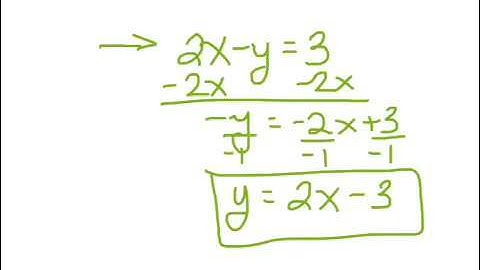 → 2x-y=3
-2x -2x
-y = -2x+3
-1 -1 -1
y = 2x-3